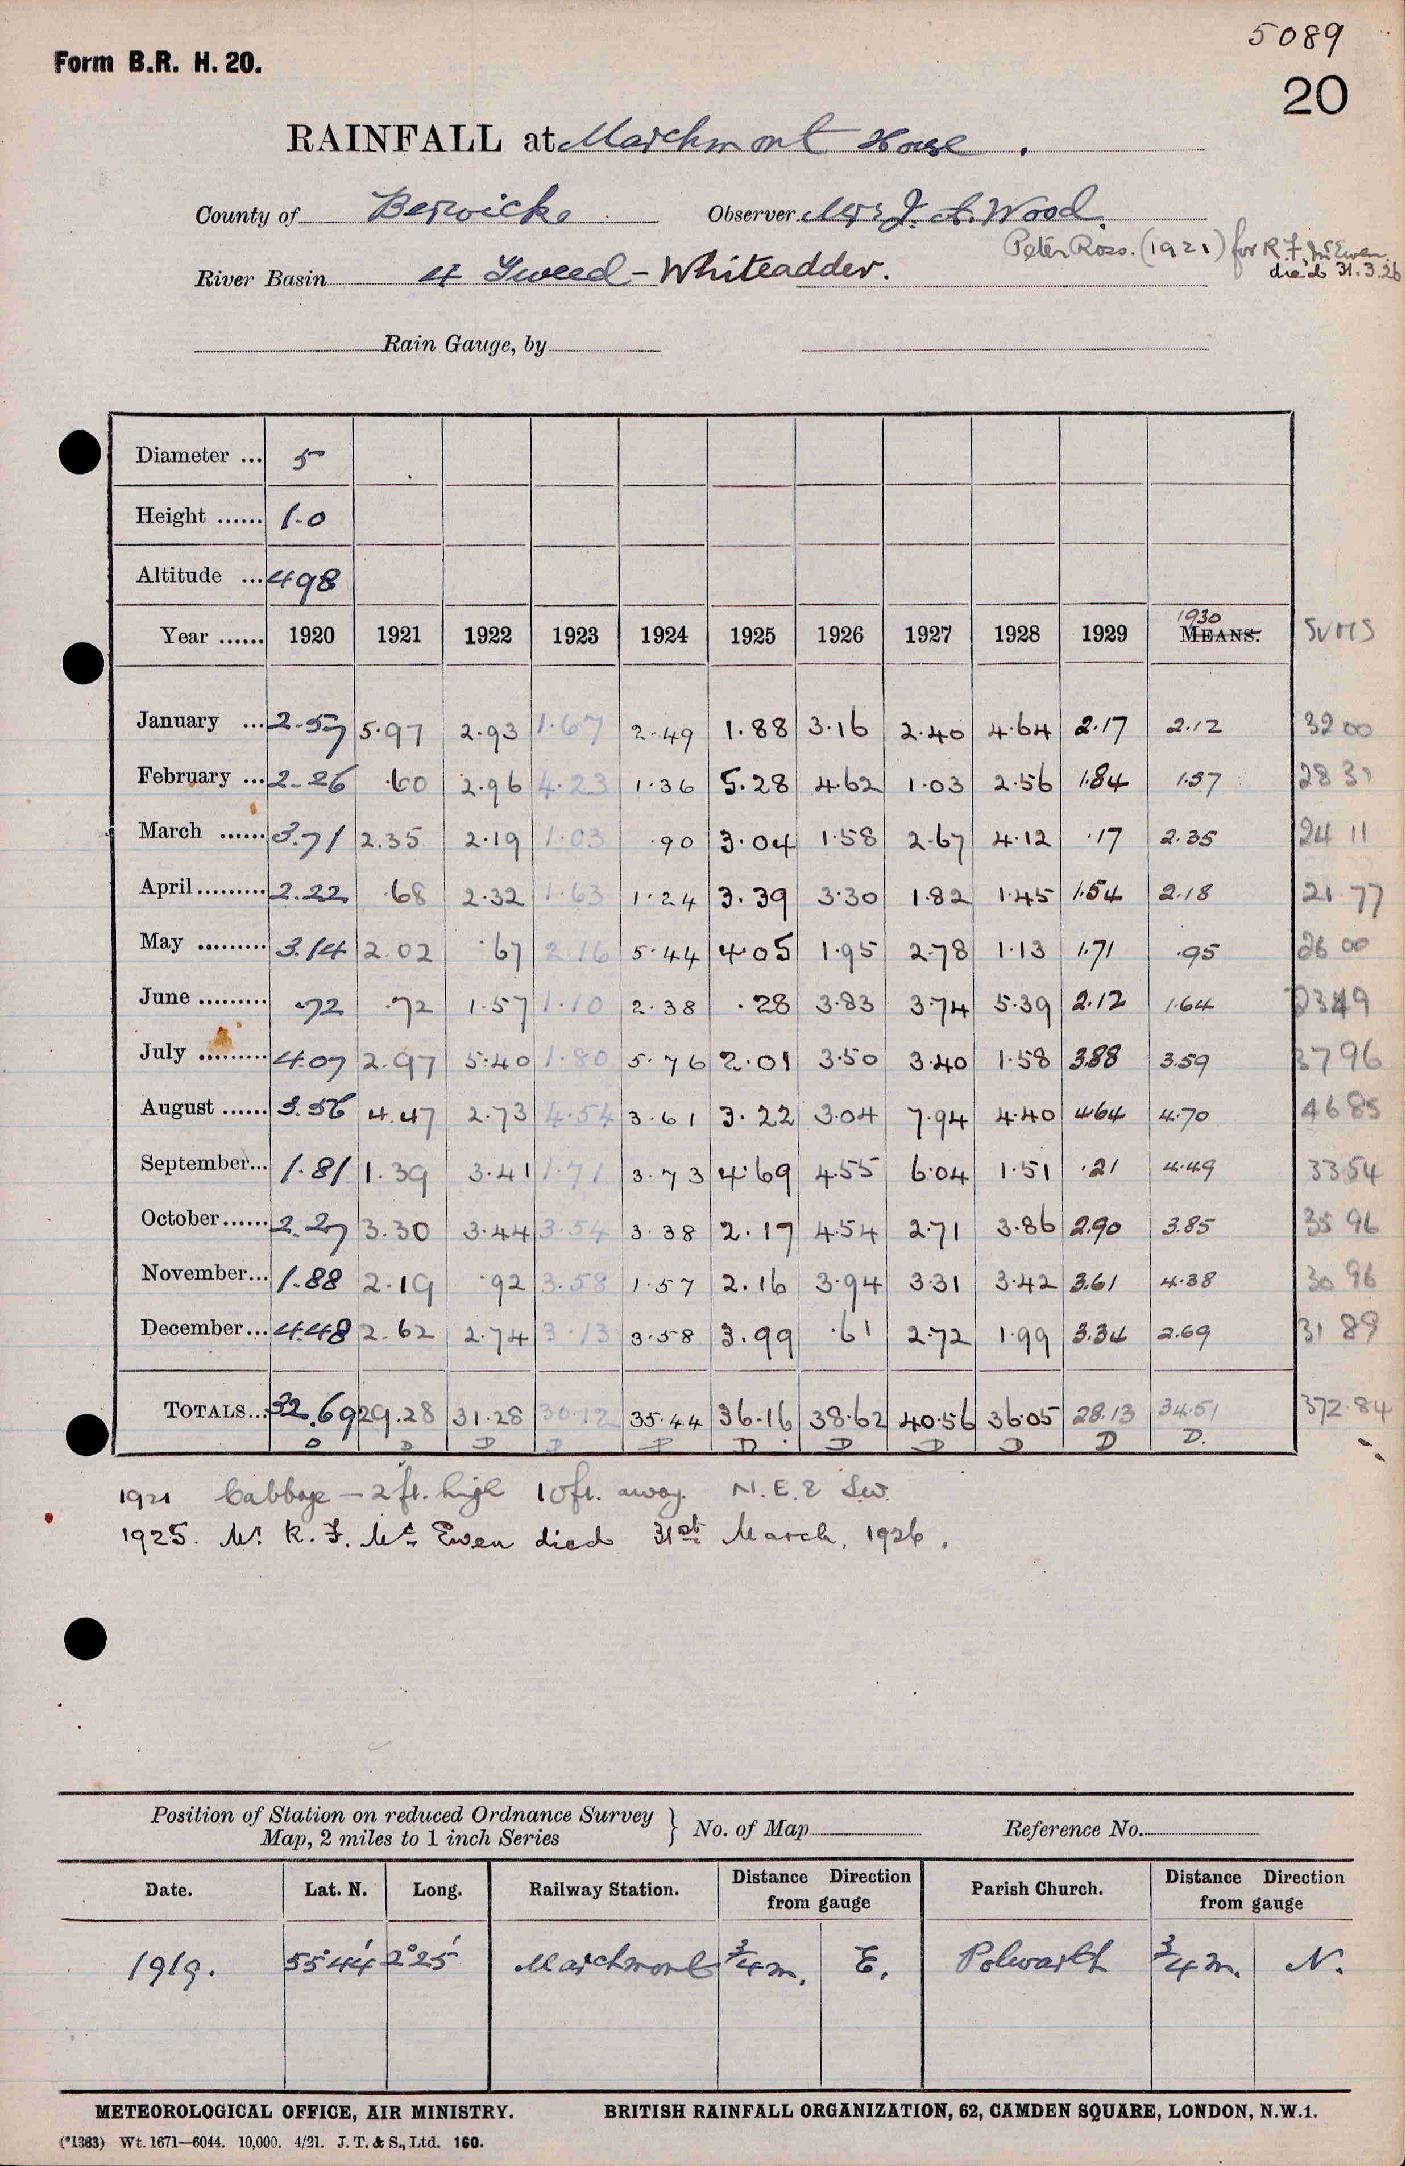 5089
Form B.R. H. 20.
20
RAINFALL at Marchmont House.
County of Berwicke Observer Mrs J. A. Wood.
Peter Ross. (1921) for R F McEwen
died 31.3.26
River Basin 4 Tweed - Whiteadder.
Rain Gauge, by
Diameter ... 5
Height ...... 1.0
Altitude ... 498
1930
Year ...... 1920 1921 1922 1923 1924 1925 1926 1927 1928 1929 MEANS. SUMS
January ... 2.57 5.97 2.93 1.67 2.49 1.88 3.16 2.40 4.64 2.17 2.12 32 00
February ... 2.26 .60 2.96 4.23 1.36 5.28 4.62 1.03 2.56 1.84 1.57 28 31
March ...... 3.71 2.35 2.19 1.03 .90 3.04 1.58 2.67 4.12 .17 2.35 24 11
April ......... 2.22 .68 2.32 1.63 1.24 3.39 3.30 1.82 1.45 1.54 2.18 21 77
May ......... 3.14 2.02 .67 2.16 5.44 4.05 1.95 2.78 1.13 1.71 .95 26 00
June ......... .72 .72 1.57 1.10 2.38 .28 3.83 3.74 5.39 2.12 1.64 23 49
July ......... 4.07 2.97 5.40 1.80 5.76 2.01 3.50 3.40 1.58 3.88 3.59 37 96
August ...... 3.56 4.47 2.73 4.54 3.61 3.22 3.04 7.94 4.40 4.64 4.70 46 85
September... 1.81 1.39 3.41 1.71 3.73 4.69 4.55 6.04 1.51 .21 4.49 33 54
October...... 2.27 3.30 3.44 3.54 3.38 2.17 4.54 2.71 3.86 2.90 3.85 35 96
November... 1.88 2.19 .92 3.58 1.57 2.16 3.94 3.31 3.42 3.61 4.38 30 96
December... 4.48 2.62 2.74 3.13 3.58 3.99 .61 2.72 1.99 3.34 2.69 31 89
TOTALS... 32.69 29.28 31.28 30.12 35.44 36.16 38.62 40.56 36.05 28.13 34.51 372.84
D D D D D D D D D D D.
1921 Cabbage - 2 ft. high 10 ft. away. N.E. & SW.
1925. Mr. R. F. Mc Ewen died 31st March, 1926.
Position of Station on reduced Ordnance Survey
Map, 2 miles to 1 inch Series } No. of Map Reference No.
Date. Lat. N. Long. Railway Station. Distance Direction from gauge Parish Church. Distance Direction from gauge
1919. 55°44' 2°25' Marchmont 3/4 m. E. Polwarth 3/4 m. N.
METEOROLOGICAL OFFICE, AIR MINISTRY. BRITISH RAINFALL ORGANIZATION, 62, CAMDEN SQUARE, LONDON, N.W.1.
(*1383) Wt. 1671—6044. 10,000. 4/21. J. T. & S., Ltd. 160.